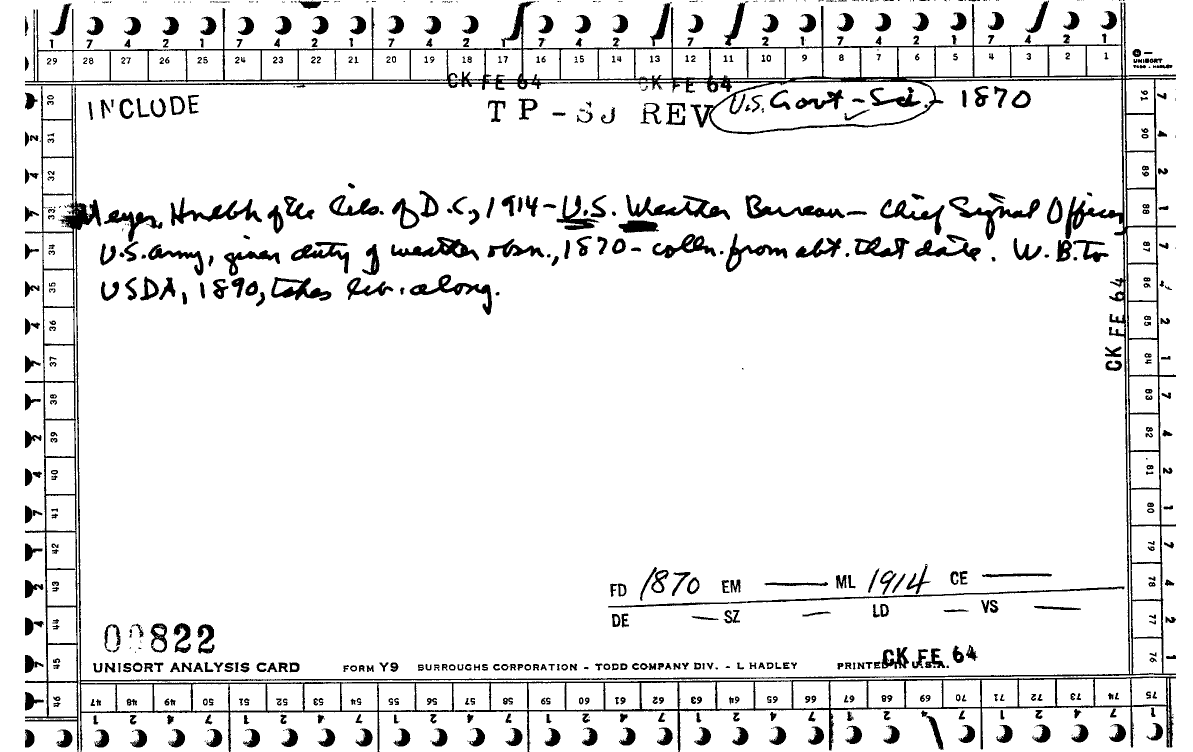 1 7 4 2 1 7 4 2 1 7 4 2 1 7 4 2 1 7 4 2 1 7 4 2 1 7 4 2 1
29 28 27 26 25 24 23 22 21 20 19 18 17 16 15 14 13 12 11 10 9 8 7 6 5 4 3 2 1
UNISORT
TODD - HADLEY
CK FE 64 CK FE 64
INCLUDE TP-SJ REV U.S. Govt - Sci. - 1870
Meyer, Hndbk of the libs. of D.C., 1914 - U.S. Weather Bureau - Chief Signal Officer,
U.S. Army, given duty of weather obsn., 1870 - colln. from abt. that date. W.B. to
USDA, 1890, takes lib. along.
CK FE 64
FD 1870 EM — ML 1914 CE —
DE — SZ — LD — VS —
00822
CK FE 64
UNISORT ANALYSIS CARD FORM Y9 BURROUGHS CORPORATION - TODD COMPANY DIV. - L HADLEY PRINTED IN U.S.A.
30 31 32 33 34 35 36 37 38 39 40 41 42 43 44 45 46
91 90 89 88 87 86 85 84 83 82 81 80 79 78 77 76
47 48 49 50 51 52 53 54 55 56 57 58 59 60 61 62 63 64 65 66 67 68 69 70 71 72 73 74 75
1 2 4 7 1 2 4 7 1 2 4 7 1 2 4 7 1 2 4 7 1 2 4 7 1 2 4 7 1